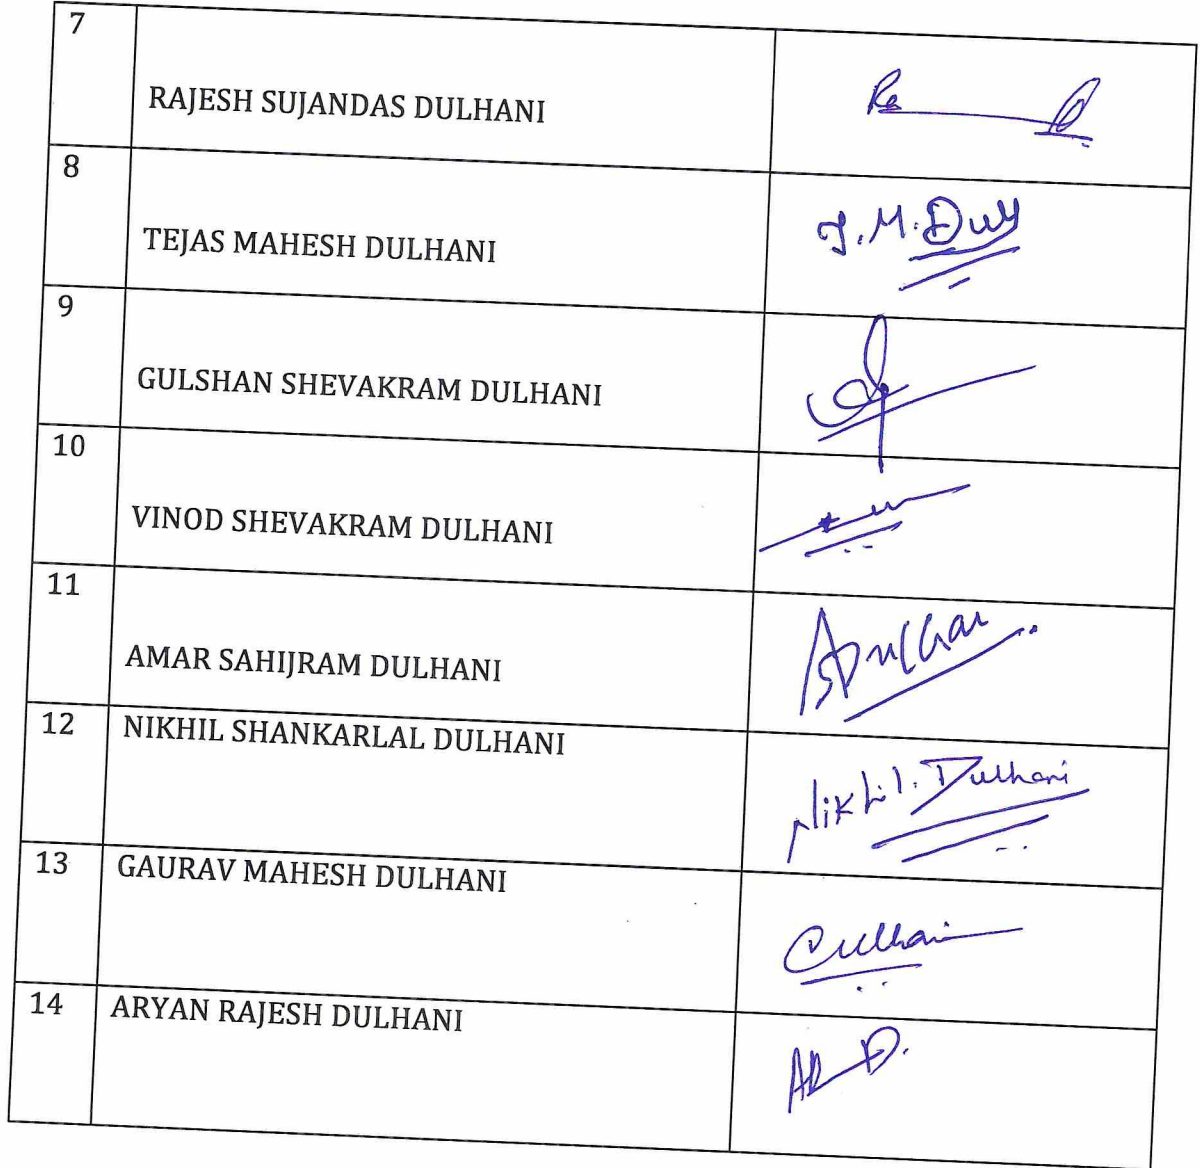 7
RAJESH SUJANDAS DULHANI
8
TEJAS MAHESH DULHANI
T.M.Dul
9
GULSHAN SHEVAKRAM DULHANI
10
VINOD SHEVAKRAM DULHANI
11
AMAR SAHIJRAM DULHANI
12
NIKHIL SHANKARLAL DULHANI
Nikhil. Dulhani
13
GAURAV MAHESH DULHANI
14
ARYAN RAJESH DULHANI